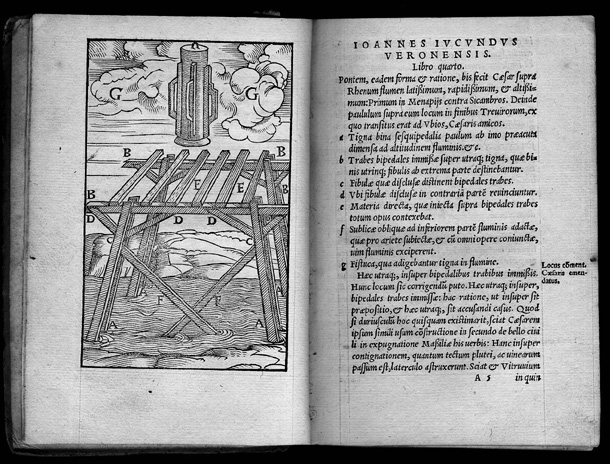 G
G
B
B
E
B
B
D
D
D
D
C
C
F
F
A
A
A
IOANNES IVCVNDVS
VERONENSIS.
Libro quarto.
Pontem, eadem forma & ratione, bis fecit Cæsar supra
Rhenum flumen latißimum, rapidißimum, & altißi-
mum: Primum in Menapijs contra Sicambros. Deinde
paululum supra eum locum in finibus Treuirorum, ex
quo transitus erat ad Vbios, Cæsaris amicos.
a Tigna bina sesquipedalia paulum ab imo præacuta
dimensa ad altiudinem fluminis. &c.
b Trabes bipedales immißæ super utraq; tigna, quæ bi-
nis utrinq; fibulis ab extrema parte destinebantur.
c Fibulæ quæ disclusæ distinent bipedales trabes.
d Vbi fibulæ disclusæ in contrariã partẽ reuinciuntur.
e Materia directa, quæ iniecta supra bipedales trabes
totum opus contexebat.
f Sublicæ obliquæ ad inferiorem partẽ fluminis adactæ,
quæ pro ariete subiectæ, & cũ omni opere coniunctæ,
uim fluminis exciperent.
g Fistuca, qua adigebantur tigna in flumine.
Hæc utraq;, insuper bipedalibus trabibus immißis.
Locus cõment.
Cæsaris emen-
datus.
Hunc locum sic corrigendũ puto. Hæc utraq; insuper,
bipedales trabes immissæ: hac ratione, ut insuper sit
præpositio, & hæc utraq, sit accusandi casus. Quod
si duriusculũ hoc quisquam existimarit, sciat Cæsarem
ipsum simili usum cõstructione in secundo de bello ciui
li in expugnatione Maßiliæ his uerbis: Hanc insuper
contignationem, quantum tectum plutei, ac uinearum
passum est, laterculo astruxerunt. Sciat & Vitruuium
A 5
in quin